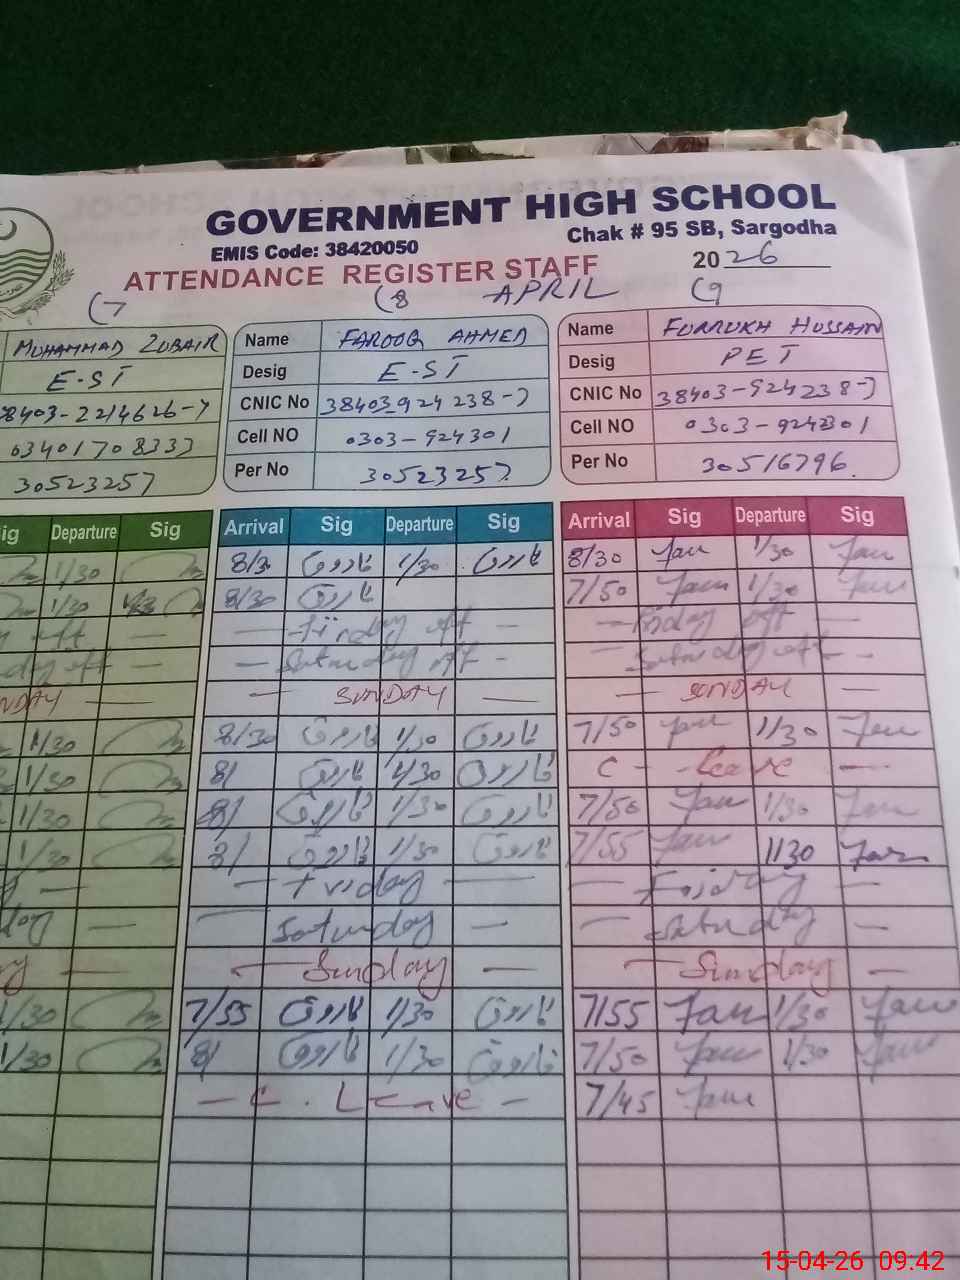 GOVERNMENT HIGH SCHOOL
EMIS Code: 38420050 Chak # 95 SB, Sargodha
ATTENDANCE REGISTER STAFF 2026
(7 (8 APRIL (9
MUHAMMAD ZUBAIR Name FAROOQ AHMED Name FURRUKH HUSSAIN
E-ST Desig E-ST Desig PET
38403-2214626-7 CNIC No 38403-924238-7 CNIC No 38403-924238-7
03401708333 Cell NO 0303-924301 Cell NO 0303-924301
30523257 Per No 30523257 Per No 30516796
Sig Departure Sig Arrival Sig Departure Sig Arrival Sig Departure Sig
1/30 8/30 فاروق 1/30 فاروق 8/30 1/30
1/30 8/30 فاروق 7/50 1/30
off — — Friday off — — Friday off —
day off — — Saturday off — — Saturday off —
NDAY — — SUNDAY — — SUNDAY —
1/30 8/30 فاروق 1/30 فاروق 7/50 1/30
1/30 8/ فاروق 1/30 فاروق C - Leave —
1/30 8/ فاروق 1/30 فاروق 7/50 1/30
1/30 8/ فاروق 1/30 فاروق 7/55 1130
— — Friday — — Friday —
day — — Saturday — — Saturday —
— — Sunday — — Sunday —
1/30 7/55 فاروق 1/30 فاروق 7/55 1/30
1/30 8/ فاروق 1/30 فاروق 7/50 1/30
— C. Leave — 7/45
15-04-26 09:42